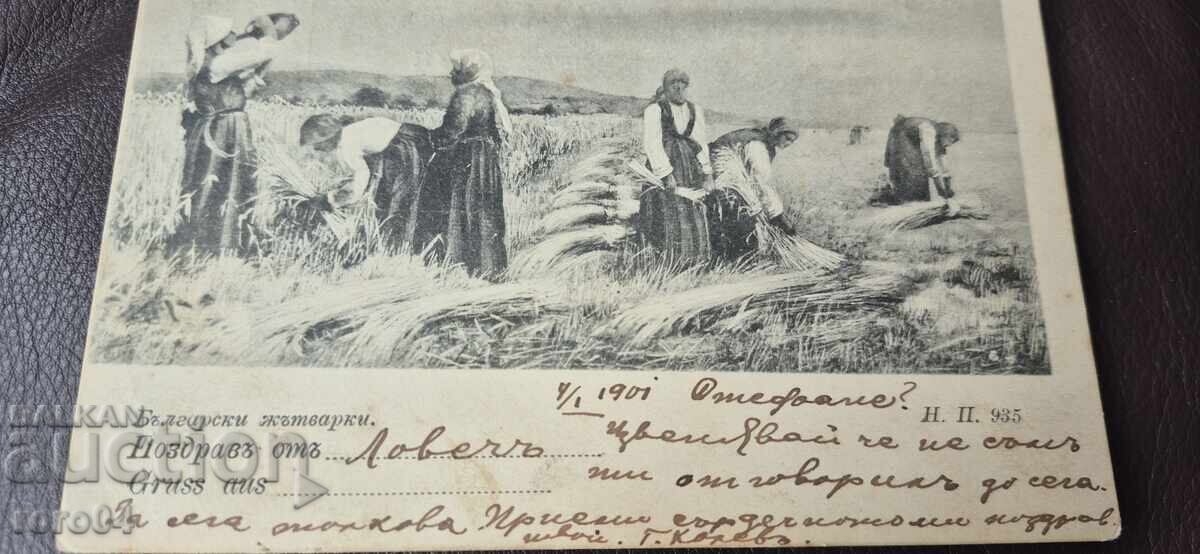 4/I 1901 Отефане?
Български жътварки.
Н. П. 935
Поздравъ отъ Ловечъ
Gruss aus
Извенявай че не съмъ
ти отговорилъ до сега.
За сега толкова Приеми сърдечнотоми поздрав
твой. Г. Колевъ
BALKAN
auction
toro04